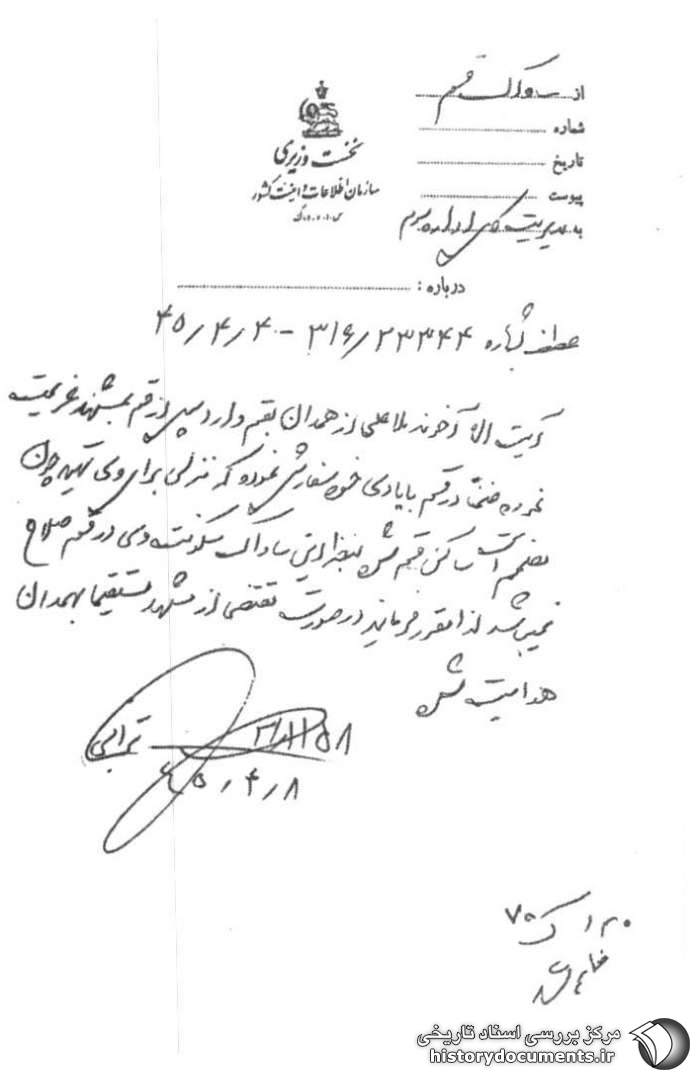 از ساواک قم
شماره
تاریخ
پیوست
به مدیریت کل اداره سوم
نخست وزیری
سازمان اطلاعات و امنیت کشور
س.ا.و.ا.ک
درباره :
عطف بشماره ۳۱۶/۲۳۳۴۴ - ۴۵/۴/۴
آیت اله آخوند ملاعلی از همدان بقم وارد و پس از قم بمشهد عزیمت
نموده ضمناً در قم بایادی خود سفارش نموده که منزلی برای وی تهیه چون
مصمم است ساکن قم شود بنظر این ساواک سکونت وی در قم صلاح
نمیباشد لذا مقرر فرمایند در صورت تقتضی از مشهد مستقیما بهمدان
هدایت شود
ترابی
۴۵/۴/۸
مرکز بررسی اسناد تاریخی
historydocuments.ir